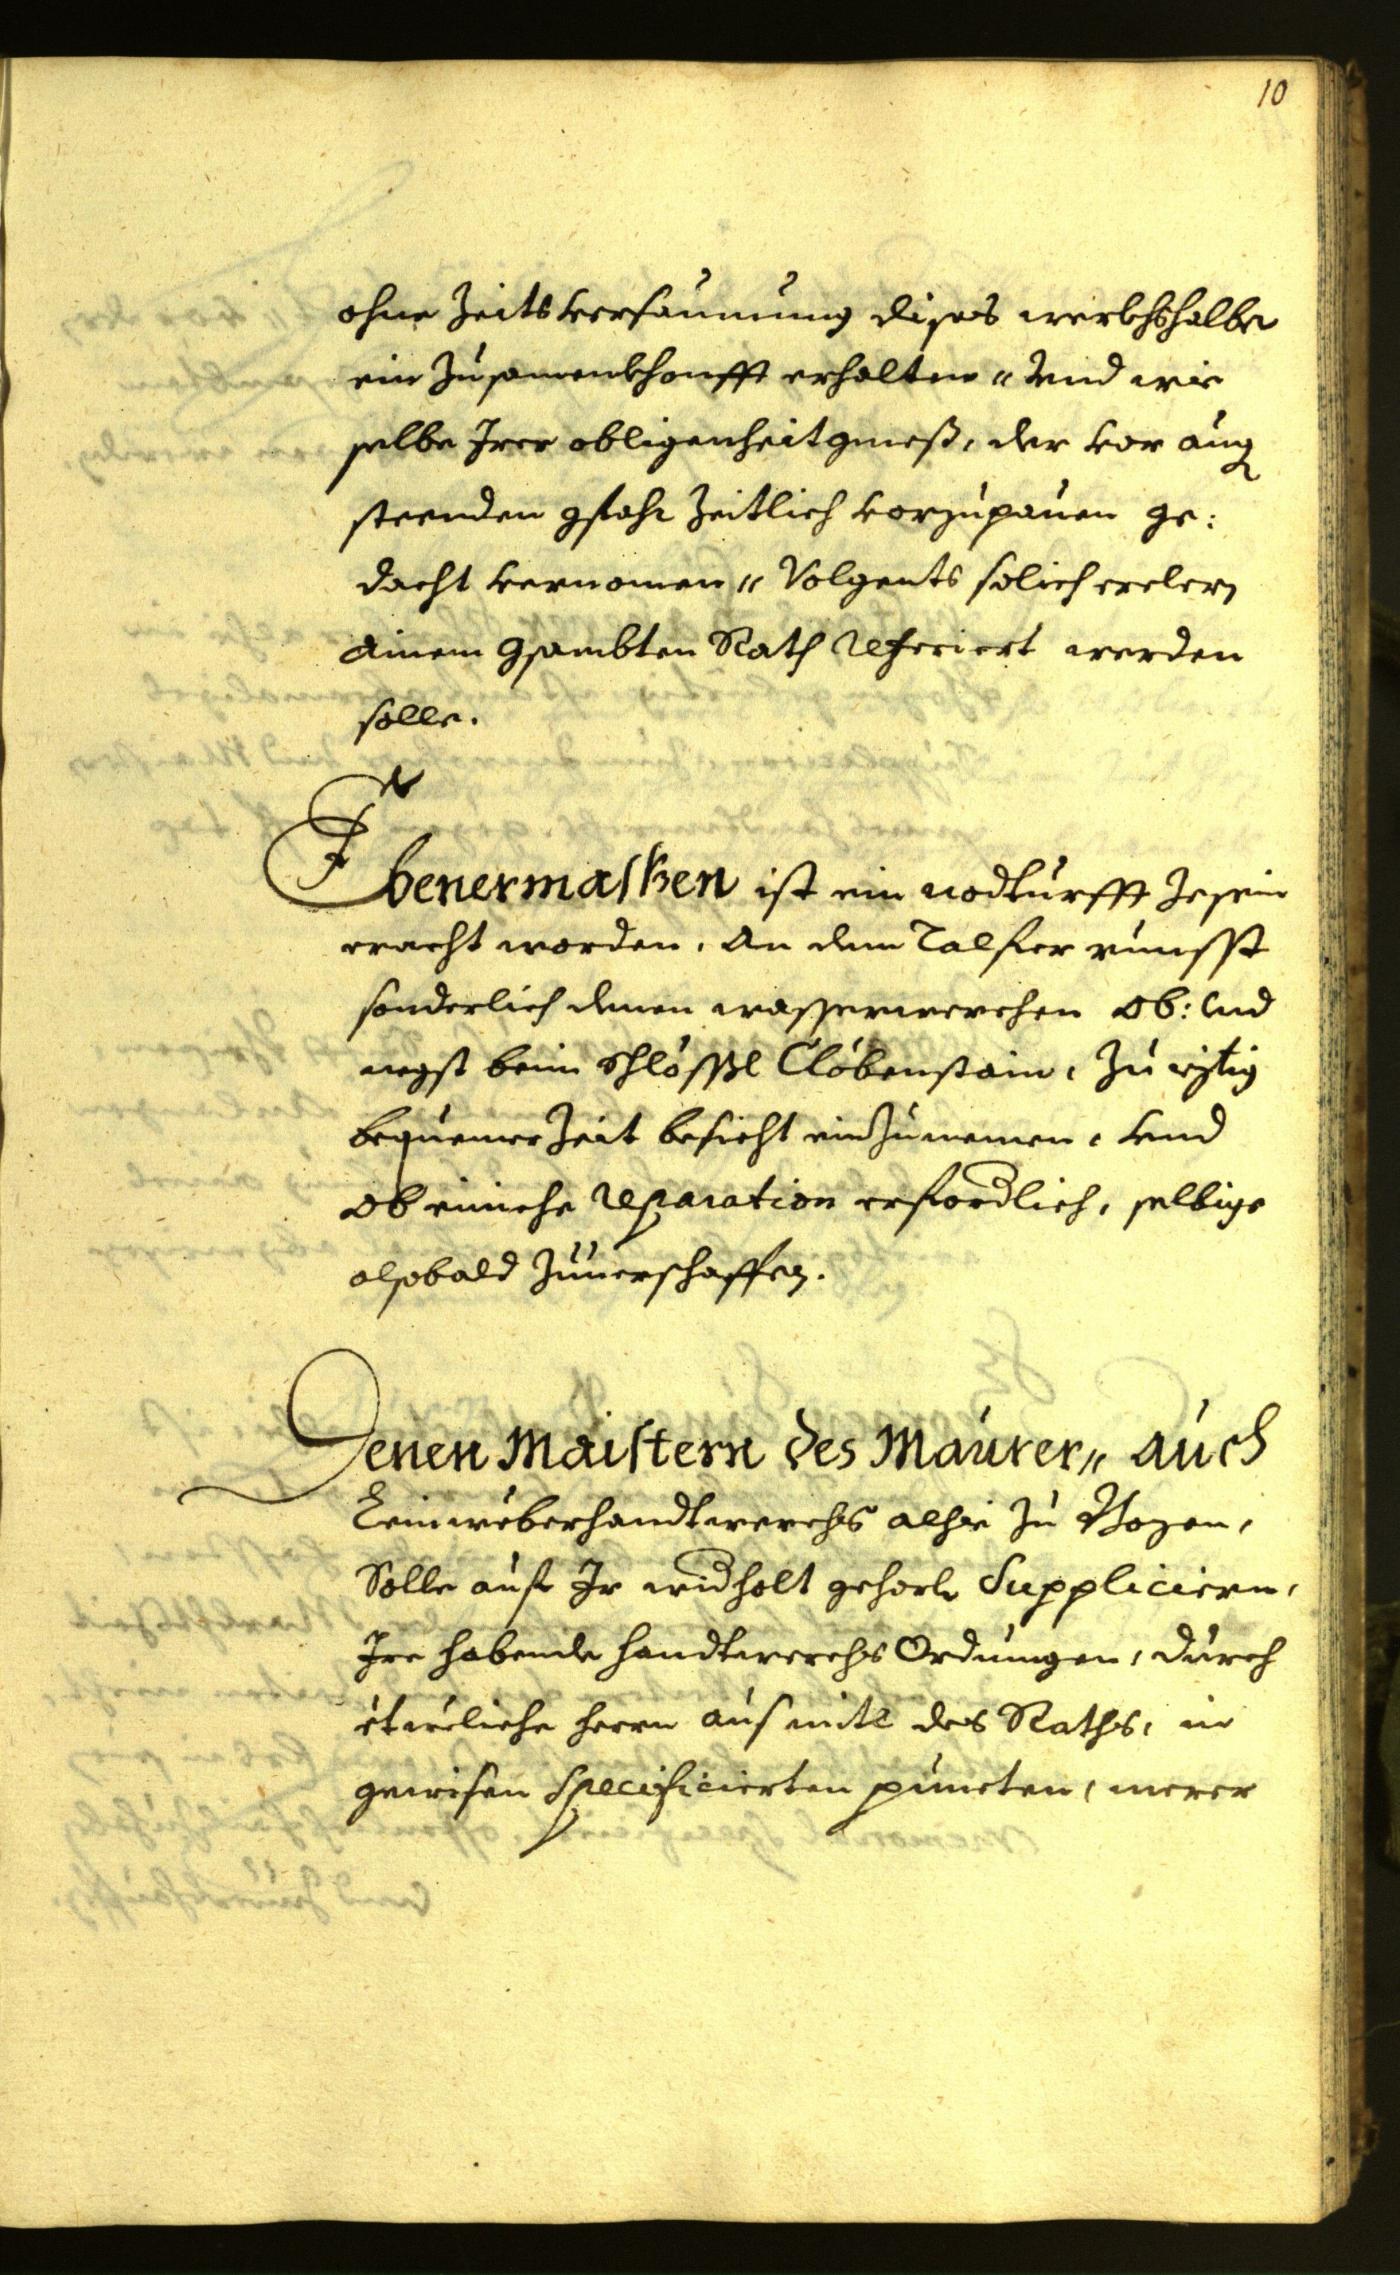 10
ohne Zeitsversaumung dises werkhshalber
ein Zusamenkhonfft erhalten„ vnd wie
selbe Irer obligenheit gmeß, der vor aug
steenden gfahr Zeitlich vorzupauen ge:
dacht vernomen„ Volgents solich
ainem gsambten Rath referiert werden
solle.
Ebenermassen ist ein nodturfft Zesein
eracht worden, An dem Talfer runsst
sonderlich denen wasserwerchen ob: vnd
negst beim Schlössl Clobenstain, Zu
bequemer Zeit besicht einzunemen, vnd
ob einiche reparation erfordlich, selbige
alsobald Zuuerschaffen.
Denen Maistern des Maurer„ auch
Leinweberhandtwerchs alhie Zu Bozen,
Solle auf Ir widholt gehors Supplicieren,
Ire habende handtwerchs Ordnungen, durch
etweliche herrn aus mitl des Raths, in
gewisen specificierten puncten, merer